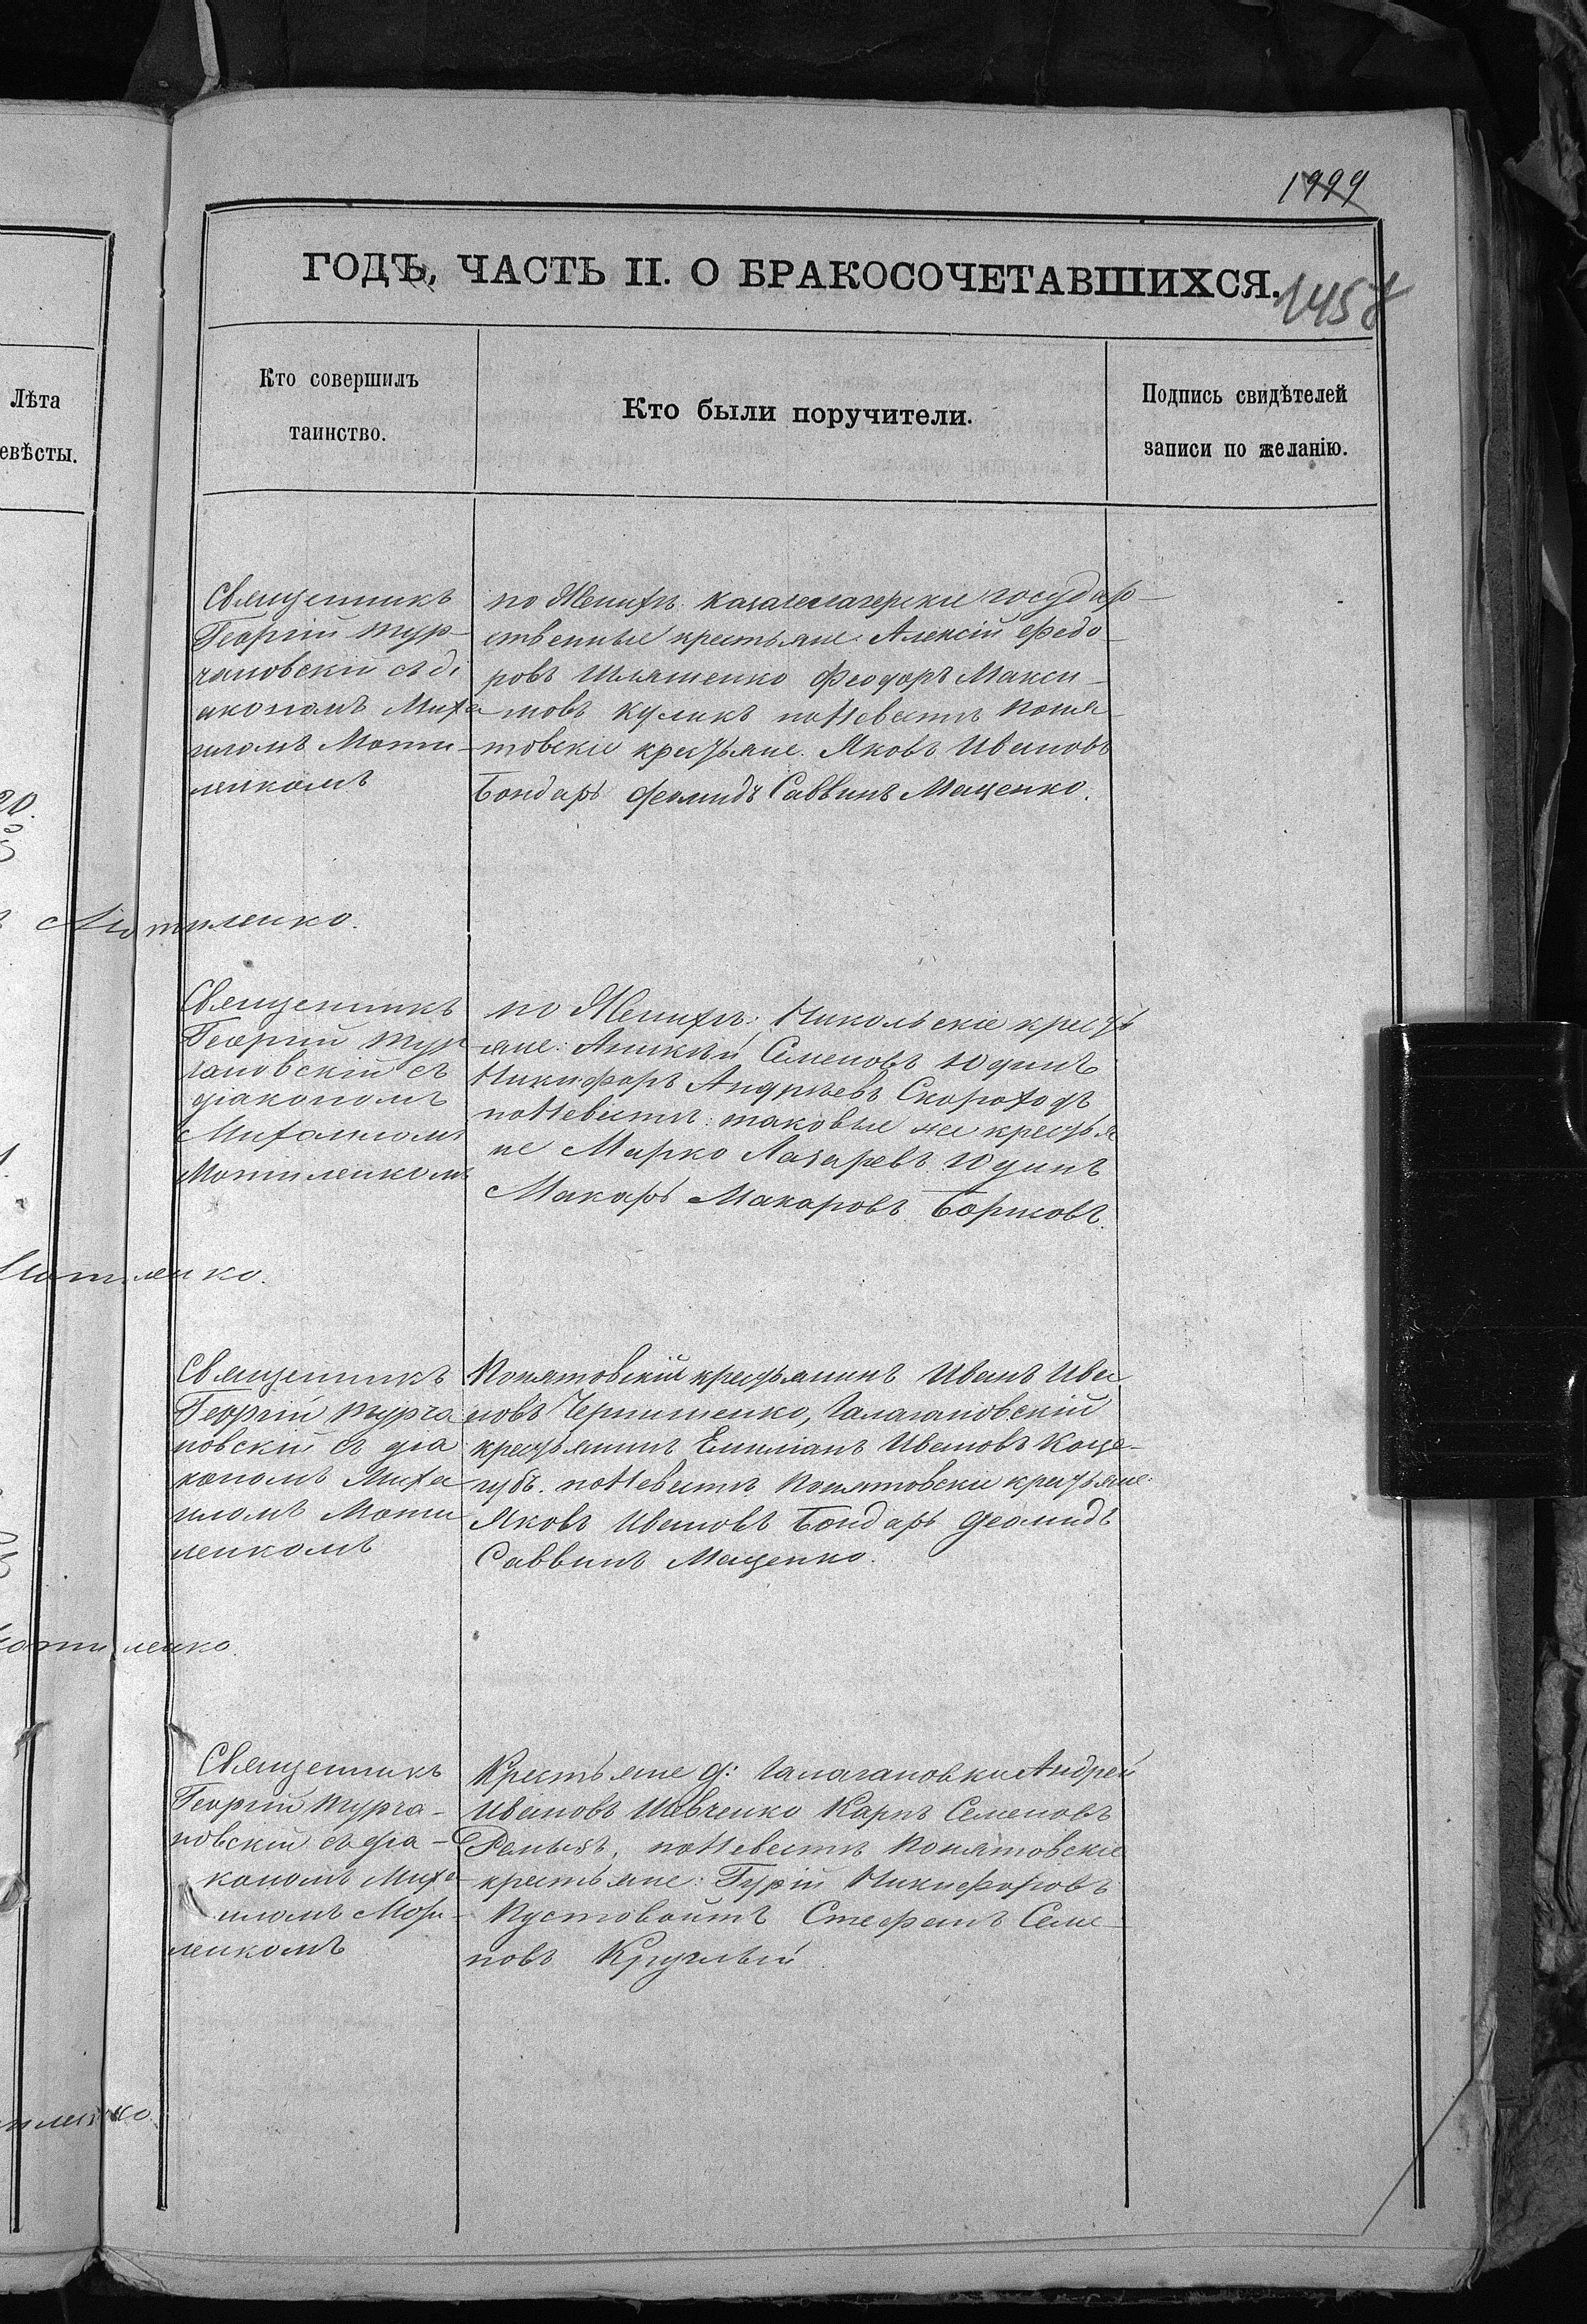 1999
ГОДЪ, ЧАСТЬ II. О БРАКОСОЧЕТАВШИХСЯ.
1458
Лѣта
евѣсты.
Кто совершилъ
таинство.
Кто были поручители.
Подпись свидѣтелей
записи по желанію.
Священникъ
Георгій Тур-
чановскій съ ді
акономъ Миха
иломъ Моти-
ленкомъ
по Женихѣ: Казачелагерскіе государ-
ственные крестьяне: Алексій Федо-
ровъ Шляшенко Феодоръ Макси-
мовъ Куликъ по Невестѣ Поня-
товскіе крестьяне. Яковъ Ивановъ
Бондарь Феомидъ Саввинъ Маценко.
Мотиленко.
Священникъ
Георгій Тур
чановскій съ
діакономъ
Михаиломъ
Мотиленкомъ
по Женихѣ: Никольскіе кресть
яне: Аникій Семеновъ Юдинъ
Никифоръ Андреевъ Скороходъ
по Невестѣ: таковые же крестья
не Марко Лазаревъ Юдинъ
Макаръ Макаровъ Борисовъ.
Мотиленко.
Священникъ
Георгій Турча
новскій съ діа
кономъ Миха
иломъ Моти
ленкомъ
Понятовскій крестьянинъ Иванъ Ива
новъ Чернишенко, Галагановскій
крестьянинъ Емиліанъ Ивановъ Коце-
губъ. по Невестѣ Понятовскіе крестьяне:
Яковъ Ивановъ Бондарь Феомидъ
Саввинъ Маценко.
Мотиленко.
Священникъ
Георгій Турча-
новскій съ діа-
кономъ Миха
иломъ Моти-
ленкомъ
Крестьяне д: Галагановки Андрей
Ивановъ Шевченко Карпъ Семеновъ
по Невестѣ Понятовскіе
крестьяне: Гурій Никифоровъ
Пустовойтъ Стефанъ Семе-
новъ Круглый.